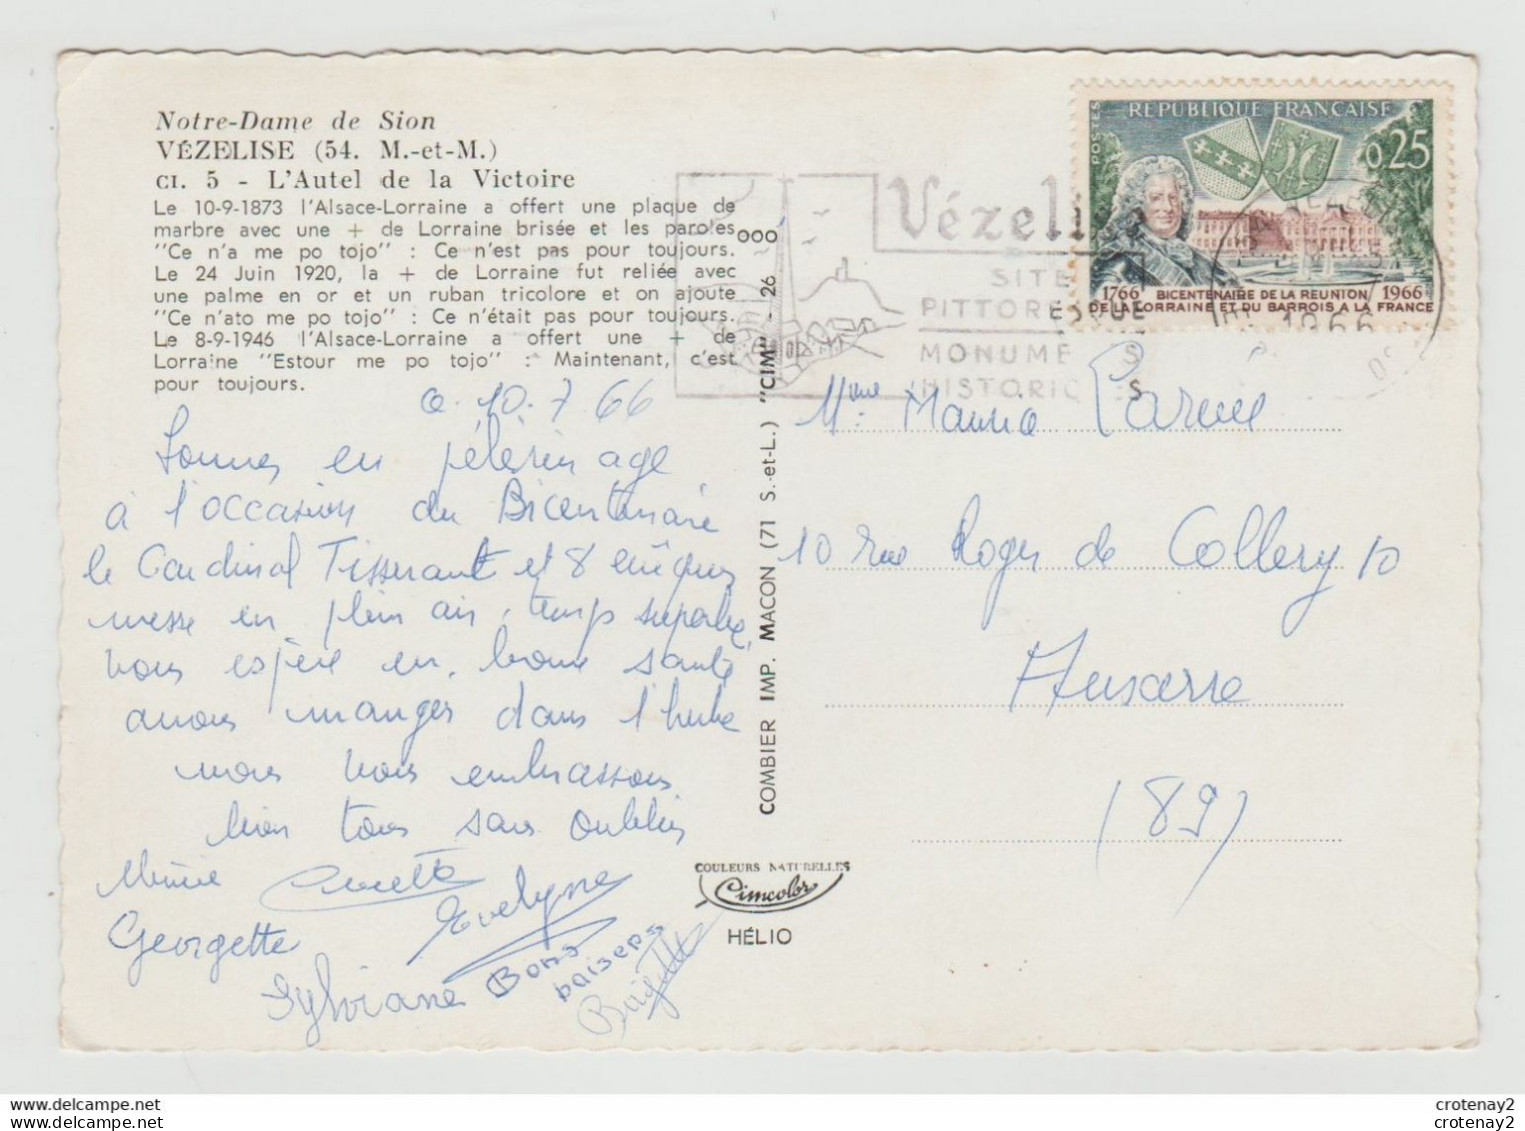 Notre-Dame de Sion
VÉZELISE (54. M.-et-M.)
CI. 5 - L'Autel de la Victoire
Le 10-9-1873 l'Alsace-Lorraine a offert une plaque de
marbre avec une + de Lorraine brisée et les paroles
"Ce n'a me po tojo" : Ce n'est pas pour toujours.
Le 24 Juin 1920, la + de Lorraine fut reliée avec
une palme en or et un ruban tricolore et on ajoute
"Ce n'ato me po tojo" : Ce n'était pas pour toujours.
Le 8-9-1946 l'Alsace-Lorraine a offert une + de
Lorraine "Estour me po tojo" : Maintenant, c'est
pour toujours.
10.7 66
Sommes en pélerinage
à l'occasion du Bicentenaire
le Cardinal Tisserant et 8 évêques
messe en plein air, temps superbe,
vous espère en bonne santé
avons manger dans l'herbe
nous vous embrassons
bien tous sans oublier
Mimie
Georgette
Evelyne
Sylviane
Bons
baisers
Brigitte
COMBIER IMP. MACON (71 S.-et-L.) "CIM" - 26
000
COULEURS NATURELLES
Cimcolor
HÉLIO
Vézeli
SITE
PITTORESQUE
MONUME S
HISTORIQ S
1966
POSTES
REPUBLIQUE FRANÇAISE
0,25
1766 BICENTENAIRE DE LA REUNION 1966
DE LA LORRAINE ET DU BARROIS A LA FRANCE
Mme
10 rue Roger de Collery 10
Auxerre
(89)
crotenay2
crotenay2